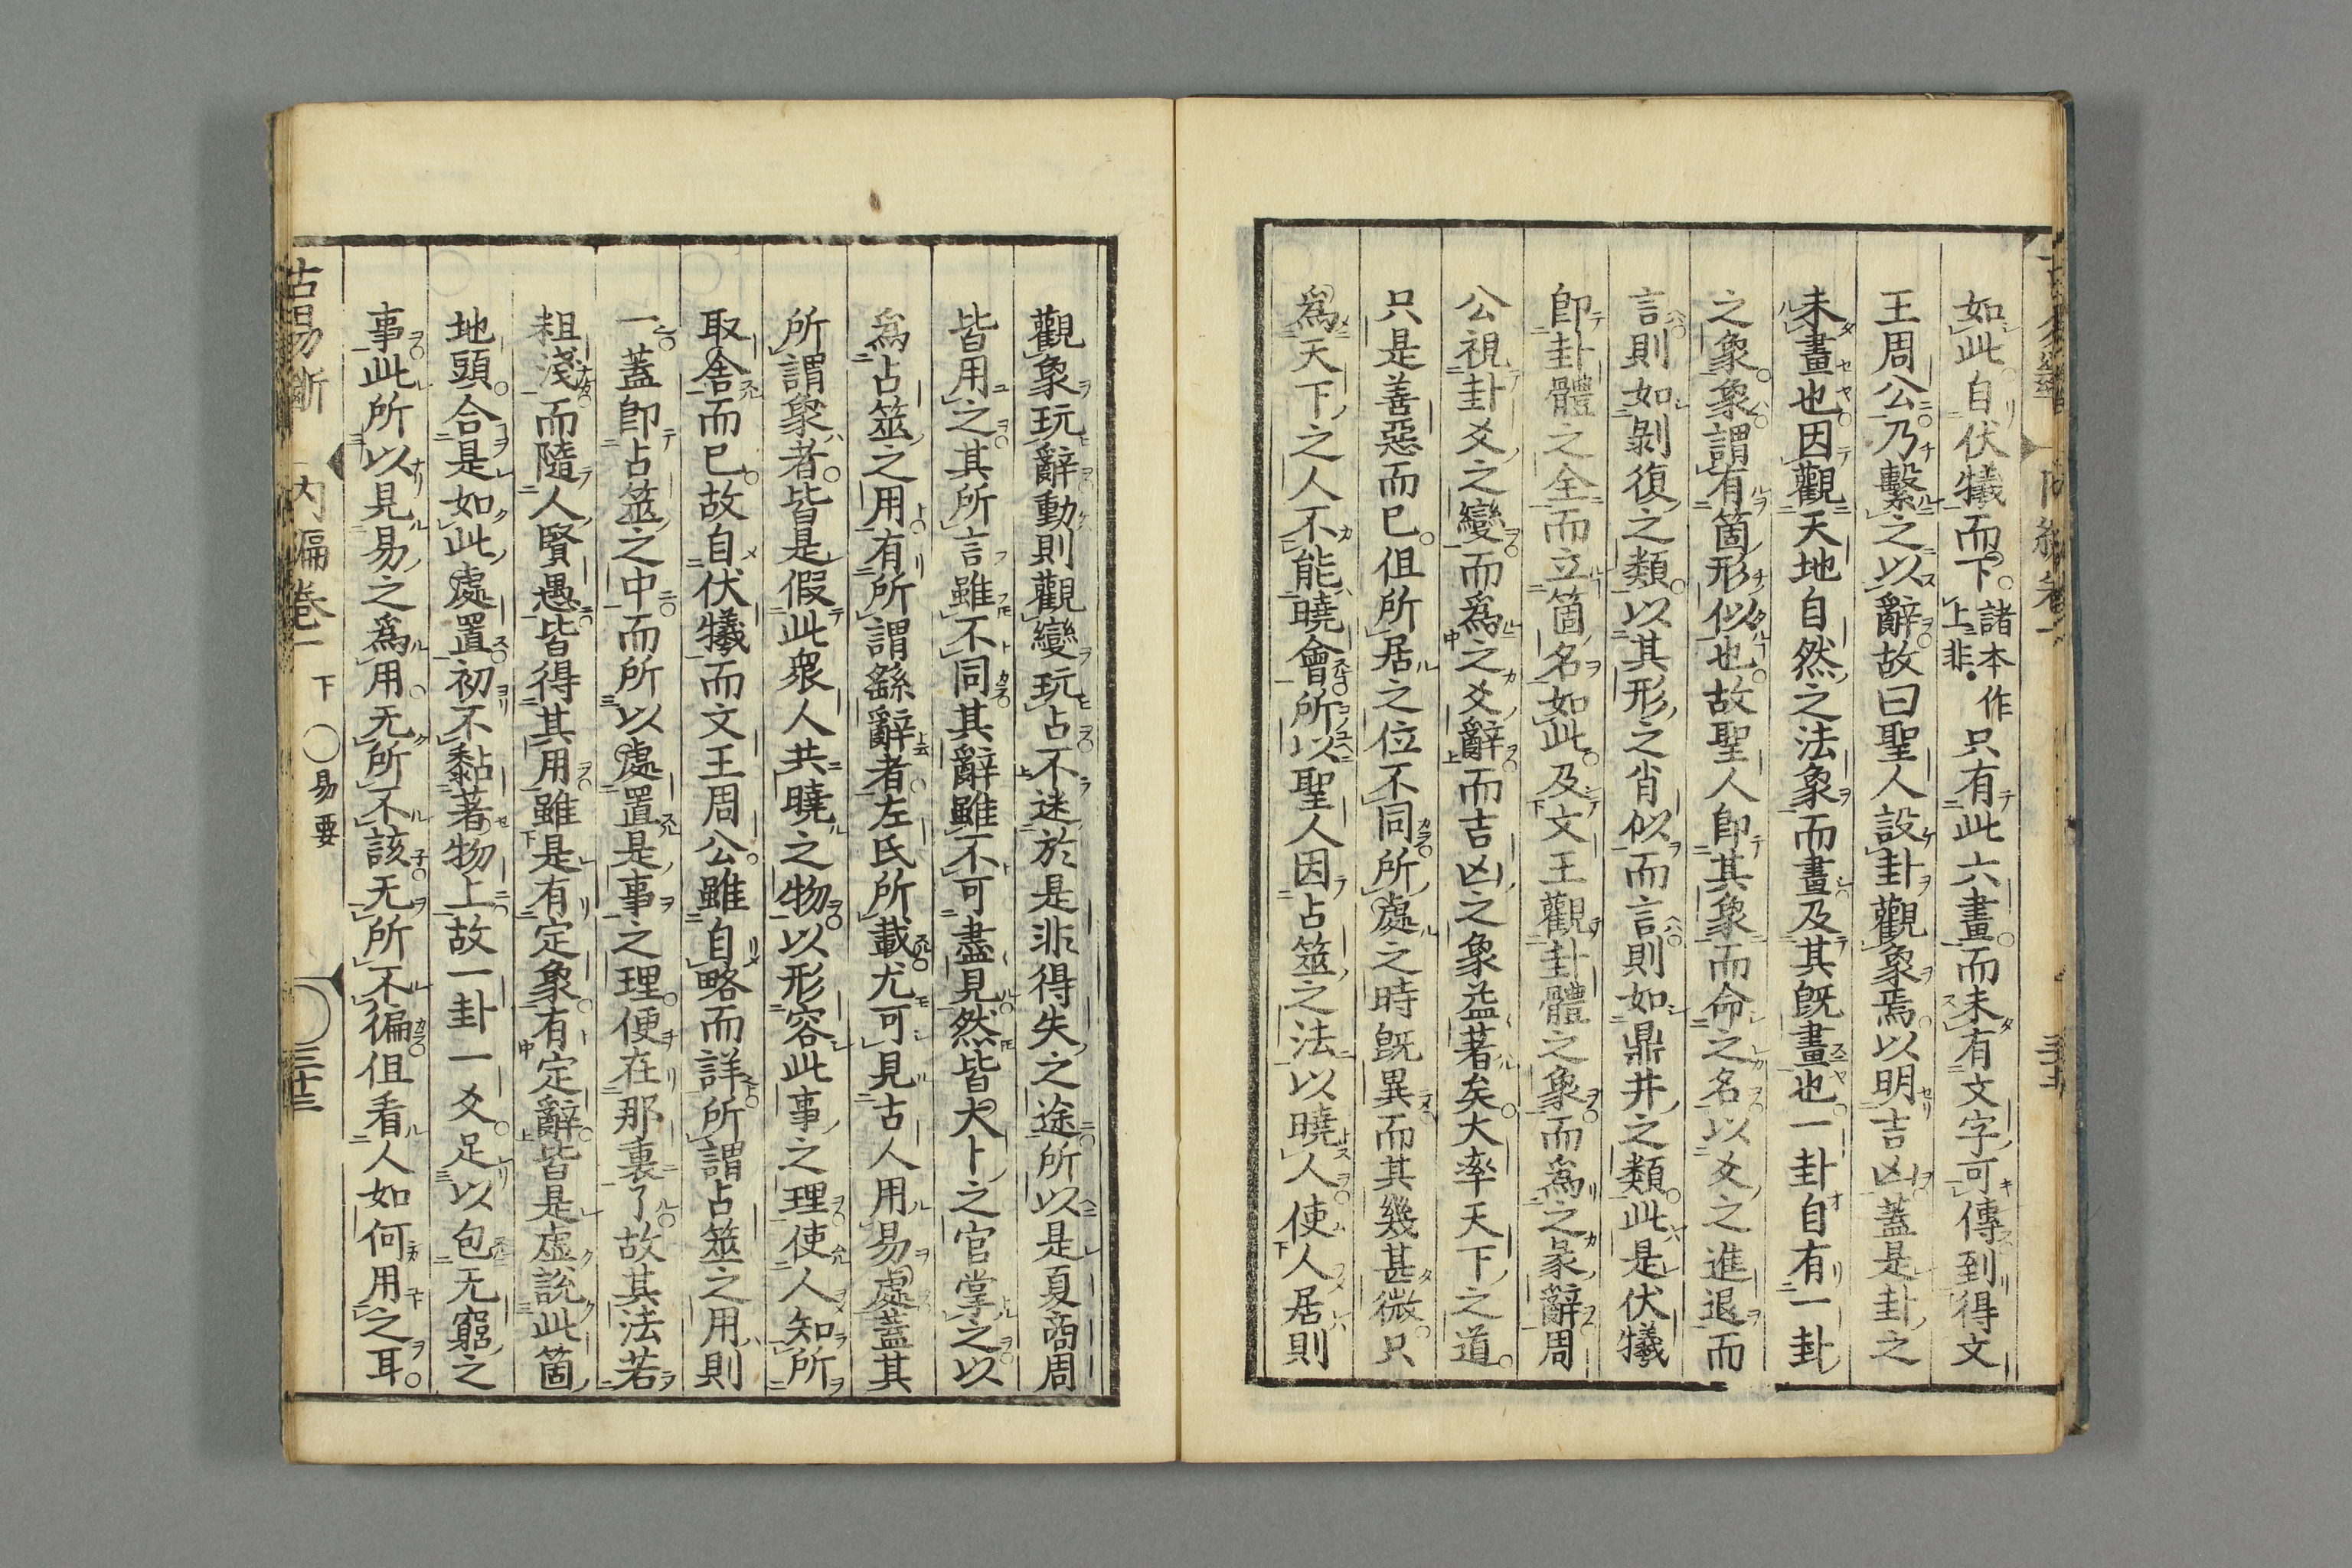 如此自伏犧而下諸本作上非只有此六畫而未有文字可傳到得文
王周公乃繫之以辭故曰聖人設卦觀象焉以明吉凶蓋是卦之
未畫也因觀天地自然之法象而畫及其既畫也一卦自有一卦
之象象謂有箇形似也故聖人卽其象而命之名以爻之進退而
言則如剝復之類以其形之肖似而言則如鼎井之類此是伏犧
卽卦體之全而立箇名如此及文王觀卦體之象而爲之彖辭周
公視卦爻之變而爲之爻辭而吉凶之象益著矣大率天下之道
只是善惡而已但所居之位不同所處之時既異而其幾甚微只
爲天下之人不能曉會所以聖人因占筮之法以曉人使人居則
觀象玩辭動則觀變玩占不迷於是非得失之途所以是夏商周
皆用之其所言雖不同其辭雖不可盡見然皆大卜之官掌之以
爲占筮之用有所謂繇辭者左氏所載尤可見古人用易處蓋其
所謂象者皆是假此衆人共曉之物以形容此事之理使人知所
取舍而已故自伏犧而文王周公雖自略而詳所謂占筮之用則
一蓋卽占筮之中而所以處置是事之理便在那裏了故其法若
粗淺而隨人賢愚皆得其用雖是有定象有定辭皆是虛說此箇
地頭合是如此處置初不黏著物上故一卦一爻足以包无窮之
事此所以見易之爲用无所不該无所不徧但看人如何用之耳
古易斷 內編卷一 下 〇易要 三十三